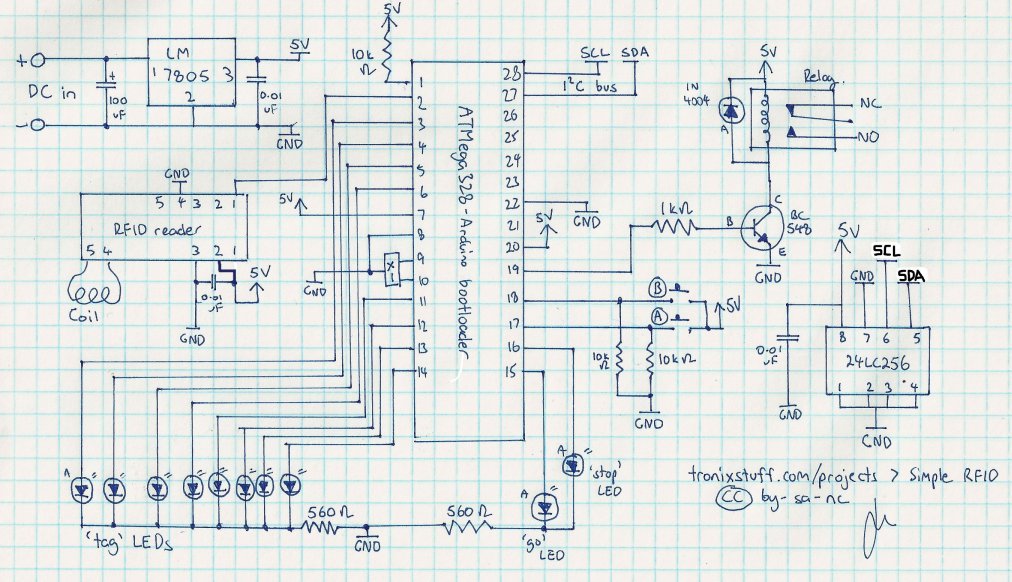 +
DC in
-
+
100
uF
LM
1 7805 3
2
0.01
uF
5V
GND
5V
10k
Ω
ATMega328-Arduino bootloader
1
2
3
4
5
6
7
8
9
10
11
12
13
14
28
27
26
25
24
23
22
21
20
19
18
17
16
15
SCL SDA
I²C bus
GND
5V
5V
X
1
GND
GND
5 4 3 2 1
RFID reader
5 4 3 2 1
Coil
0.01
uF
5V
GND
1kΩ
B
C
E
BC
548
GND
5V
Relay.
IN
4004
A
NC
NO
B
A
5V
10k
Ω
10kΩ
GND
5V
SCL
GND
SDA
8 7 6 5
24LC256
1 2 3 4
0.01
uF
GND
GND
A
'tag' LEDs
560Ω
GND
560Ω
A
'go'
LED
A
'stop'
LED
tronixstuff.com/projects > Simple RFID
CC by-sa-nc